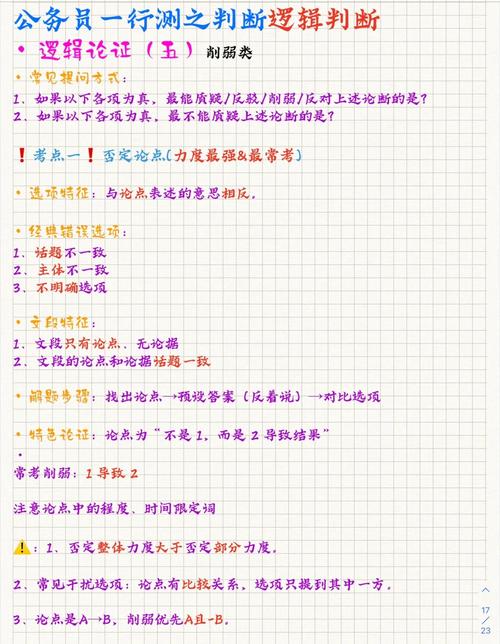 公务员一行测之判断逻辑判断
• 逻辑论证（五）削弱类
• 常见提问方式：
1、如果以下各项为真，最能质疑/反驳/削弱/反对上述论断的是？
2、如果以下各项为真，最不能质疑上述论断的是？
❗考点一❗否定论点(力度最强&最常考)
• 选项特征：与论点表述的意思相反。
• 经典错误选项：
1、话题不一致
2、主体不一致
3、不明确选项
• 文段特征：
1、文段只有论点、无论据
2、文段的论点和论据话题一致
• 解题步骤：找出论点→预设答案（反着说）→对比选项
• 特色论证：论点为“不是1，而是2导致结果”
•
常考削弱：1导致2
注意论点中的程度、时间限定词
⚠️：1、否定整体力度大于否定部分力度。
2、常见干扰选项：论点有比较关系，选项只提到其中一方。
3、论点是A→B，削弱优先A且-B。
17
/
23